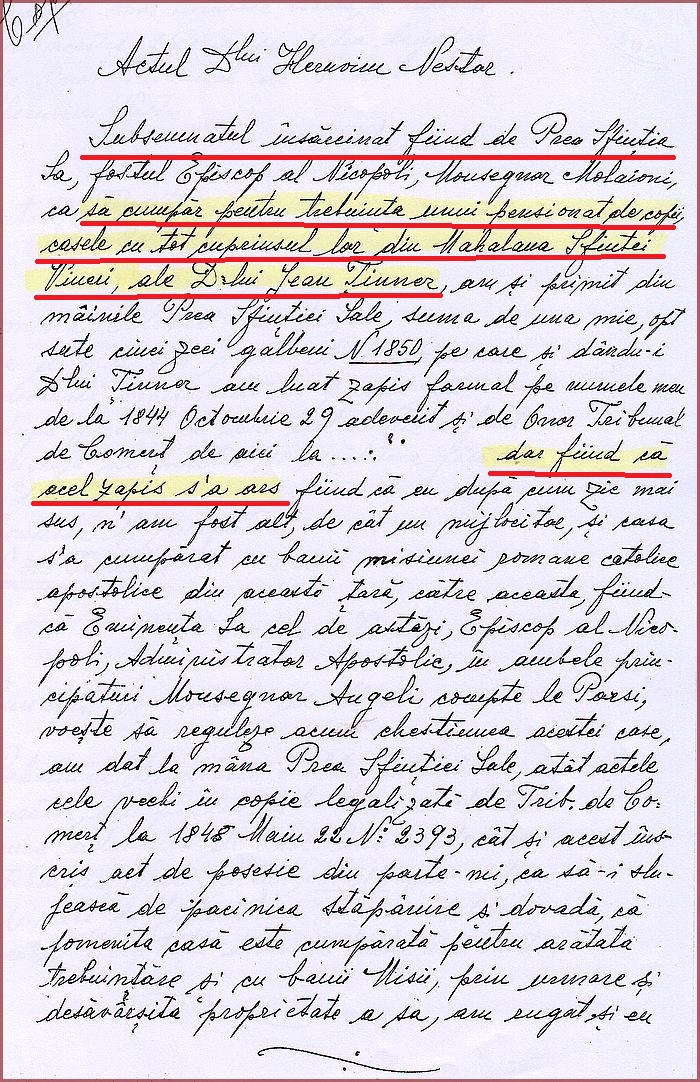 Actul Dlui Heruvim Nestor.
Subsemnatul însărcinat fiind de Prea Sfinția
Sa, fostul Episcop al Nicopoli, Monsegnor Molaioni,
ca să cumpăr pentru trebuința unui pensionat de copii,
casele cu tot cuprinsul lor din Mahalaua Sfintei
Vineri, ale D-lui Jean Tinner, am și primit din
mâinile Prea Sfinției Sale, suma de una mie, opt
sute cinci zeci galbeni N 1850, pe care și dându-i
Dlui Tinner am luat zapis formal pe numele meu
de la 1844 Octombrie 29 adeverit și de Onor Tribunal
de Comerț de aici la ....:" dar fiind că
acel zapis s'a ars fiind că eu după cum zic mai
sus, n'am fost alt, de cât un mijlocitor, și casa
s'a cumpărat cu banii misiunei romane catolice
apostolice din această țară, către aceasta, fiind-
că Eminența Sa cel de astăzi, Episcop al Nico-
poli, Administrator Apostolic, în ambele prin-
cipaturi Monsegnor Angeli compte le Parsi,
voește să reguleze acum chestiunea acestei case,
am dat la mâna Prea Sfinției Sale, atât actele
cele vechi în copie legalizată de Trib. de Co-
merț la 1848 Maiu 22 No: 2393, cât și acest îns-
cris act de posesie din parte-mi, ca să-i slu-
jească de pacinica stăpânire și dovadă, că
pomenita casă este cumpărată pentru arătata
trebuințăre și cu banii Misii, prin urmare și
desăvârșita proprietate a sa, am rugat și eu